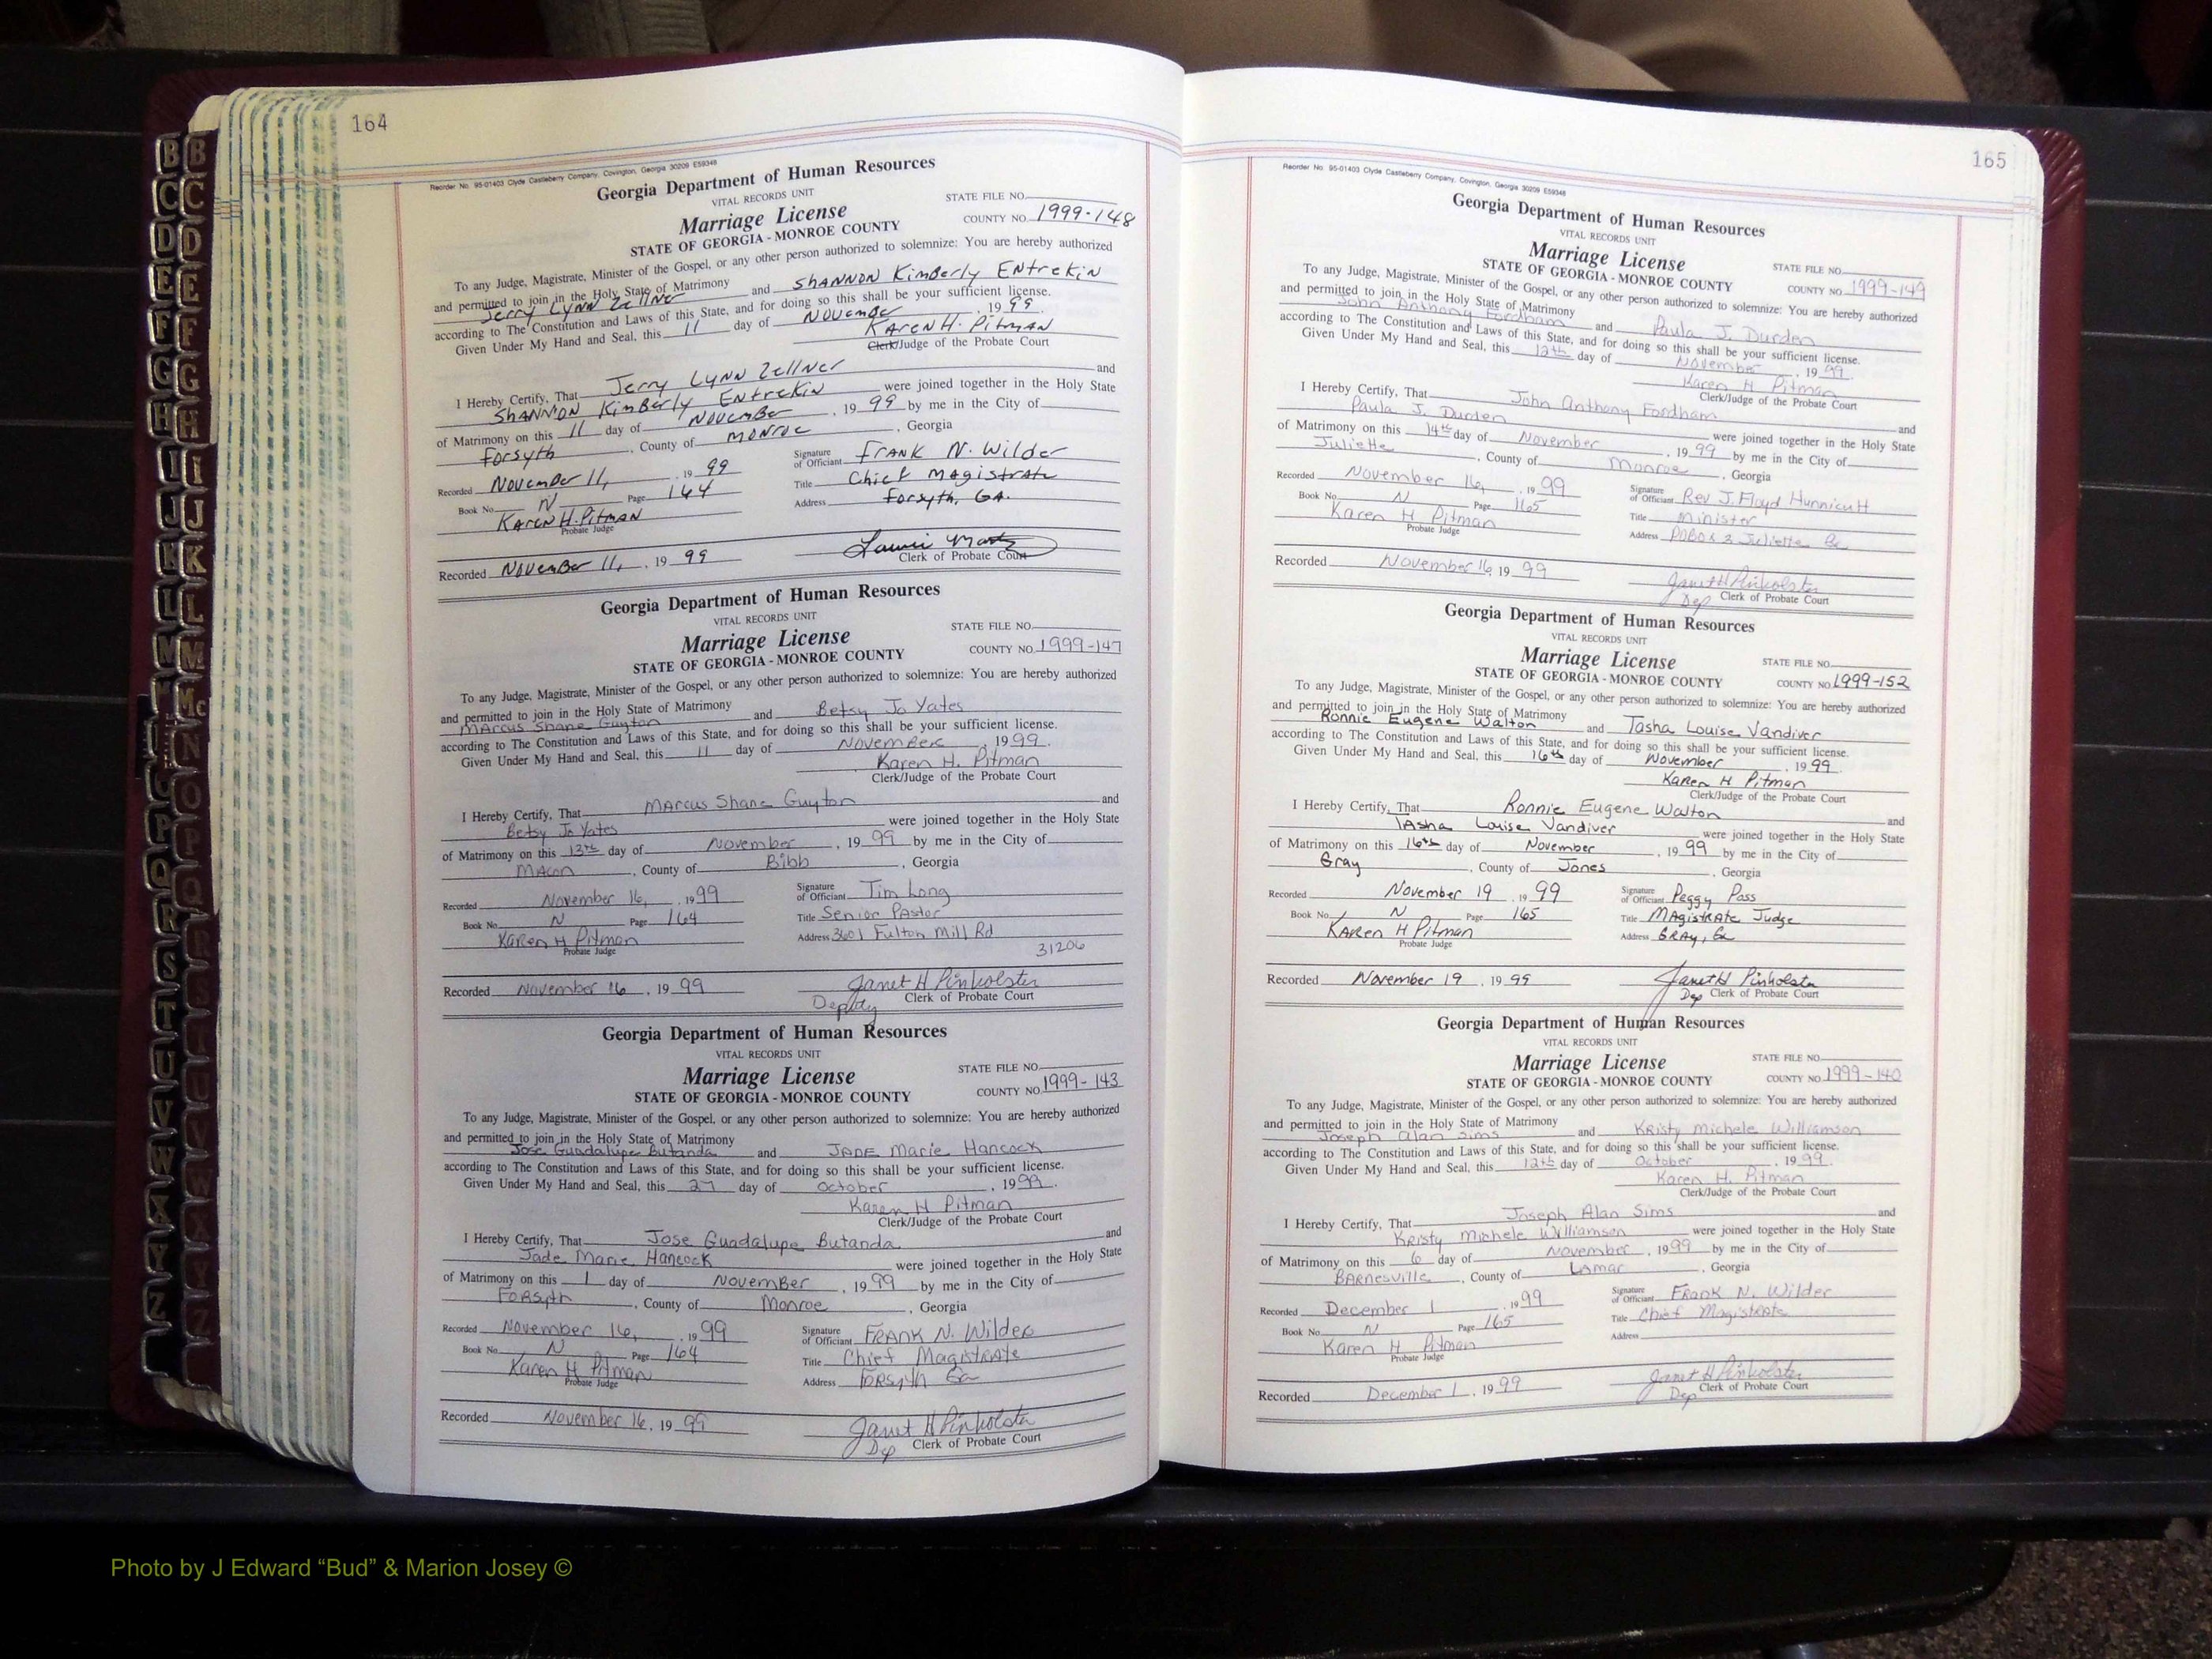 164
Reorder No. 95-01403 Clyde Castleberry Company, Covington, Georgia 30209 E59348
Georgia Department of Human Resources
VITAL RECORDS UNIT
Marriage License
STATE FILE NO.
STATE OF GEORGIA - MONROE COUNTY
COUNTY NO. 1999-148
To any Judge, Magistrate, Minister of the Gospel, or any other person authorized to solemnize: You are hereby authorized
and permitted to join in the Holy State of Matrimony
Jerry Lynn Zellner and Shannon Kimberly Entrekin
according to The Constitution and Laws of this State, and for doing so this shall be your sufficient license.
Given Under My Hand and Seal, this 11 day of November, 1999.
Karen H. Pitman
Clerk/Judge of the Probate Court
I Hereby Certify, That Jerry Lynn Zellner and
Shannon Kimberly Entrekin were joined together in the Holy State
of Matrimony on this 11 day of November, 1999 by me in the City of
Forsyth, County of Monroe, Georgia
Recorded November 11, 1999
Signature of Officiant Frank N. Wilder
Book No. N Page 164
Title Chief Magistrate
Karen H. Pitman
Probate Judge
Address Forsyth, GA.
Recorded November 11, 1999
Clerk of Probate Court
Georgia Department of Human Resources
VITAL RECORDS UNIT
Marriage License
STATE FILE NO.
STATE OF GEORGIA - MONROE COUNTY
COUNTY NO. 1999-147
To any Judge, Magistrate, Minister of the Gospel, or any other person authorized to solemnize: You are hereby authorized
and permitted to join in the Holy State of Matrimony
Marcus Shane Guyton and Betsy Jo Yates
according to The Constitution and Laws of this State, and for doing so this shall be your sufficient license.
Given Under My Hand and Seal, this 11 day of November, 1999.
Karen H. Pitman
Clerk/Judge of the Probate Court
I Hereby Certify, That Marcus Shane Guyton and
Betsy Jo Yates were joined together in the Holy State
of Matrimony on this 13th day of November, 1999 by me in the City of
Macon, County of Bibb, Georgia
Recorded November 16, 1999
Signature of Officiant Tim Long
Book No. N Page 164
Title Senior Pastor
Karen H Pitman
Probate Judge
Address 3601 Fulton Mill Rd
31206
Recorded November 16, 1999
Janet H Pinholster
Deputy Clerk of Probate Court
Georgia Department of Human Resources
VITAL RECORDS UNIT
Marriage License
STATE FILE NO.
STATE OF GEORGIA - MONROE COUNTY
COUNTY NO. 1999-143
To any Judge, Magistrate, Minister of the Gospel, or any other person authorized to solemnize: You are hereby authorized
and permitted to join in the Holy State of Matrimony
Jose Guadalupe Butanda and Jade Marie Hancock
according to The Constitution and Laws of this State, and for doing so this shall be your sufficient license.
Given Under My Hand and Seal, this 27 day of October, 1999.
Karen H Pitman
Clerk/Judge of the Probate Court
I Hereby Certify, That Jose Guadalupe Butanda and
Jade Marie Hancock were joined together in the Holy State
of Matrimony on this 1 day of November, 1999 by me in the City of
Forsyth, County of Monroe, Georgia
Recorded November 16, 1999
Signature of Officiant Frank N. Wilder
Book No. N Page 164
Title Chief Magistrate
Karen H Pitman
Probate Judge
Address Forsyth Ga
Recorded November 16, 1999
Janet H Pinholster
Dep Clerk of Probate Court
165
Reorder No. 95-01403 Clyde Castleberry Company, Covington, Georgia 30209 E59348
Georgia Department of Human Resources
VITAL RECORDS UNIT
Marriage License
STATE FILE NO.
STATE OF GEORGIA - MONROE COUNTY
COUNTY NO. 1999-149
To any Judge, Magistrate, Minister of the Gospel, or any other person authorized to solemnize: You are hereby authorized
and permitted to join in the Holy State of Matrimony
John Anthony Fordham and Paula J. Durden
according to The Constitution and Laws of this State, and for doing so this shall be your sufficient license.
Given Under My Hand and Seal, this 12th day of November, 1999.
Karen H Pitman
Clerk/Judge of the Probate Court
I Hereby Certify, That John Anthony Fordham
Paula J. Durden and
were joined together in the Holy State
of Matrimony on this 14th day of November, 1999 by me in the City of
Juliette, County of Monroe, Georgia
Recorded November 16, 1999
Signature of Officiant Rev J. Floyd Hunnicutt
Book No. N Page 165
Title Minister
Karen H Pitman
Probate Judge
Address POBox 3 Juliette Ga
Recorded November 16, 1999
Janet H Pinholster
Dep Clerk of Probate Court
Georgia Department of Human Resources
VITAL RECORDS UNIT
Marriage License
STATE FILE NO.
STATE OF GEORGIA - MONROE COUNTY
COUNTY NO. 1999-152
To any Judge, Magistrate, Minister of the Gospel, or any other person authorized to solemnize: You are hereby authorized
and permitted to join in the Holy State of Matrimony
Ronnie Eugene Walton and Tasha Louise Vandiver
according to The Constitution and Laws of this State, and for doing so this shall be your sufficient license.
Given Under My Hand and Seal, this 16th day of November, 1999.
Karen H Pitman
Clerk/Judge of the Probate Court
I Hereby Certify, That Ronnie Eugene Walton and
Tasha Louise Vandiver were joined together in the Holy State
of Matrimony on this 16th day of November, 1999 by me in the City of
Gray, County of Jones, Georgia
Recorded November 19, 1999
Signature of Officiant Peggy Pass
Book No. N Page 165
Title Magistrate Judge
Karen H Pitman
Probate Judge
Address Gray, Ga
Recorded November 19, 1999
Janet H Pinholster
Dep Clerk of Probate Court
Georgia Department of Human Resources
VITAL RECORDS UNIT
Marriage License
STATE FILE NO.
STATE OF GEORGIA - MONROE COUNTY
COUNTY NO. 1999-140
To any Judge, Magistrate, Minister of the Gospel, or any other person authorized to solemnize: You are hereby authorized
and permitted to join in the Holy State of Matrimony
Joseph Alan Sims and Kristy Michele Williamson
according to The Constitution and Laws of this State, and for doing so this shall be your sufficient license.
Given Under My Hand and Seal, this 12th day of October, 1999.
Karen H. Pitman
Clerk/Judge of the Probate Court
I Hereby Certify, That Joseph Alan Sims and
Kristy Michele Williamson were joined together in the Holy State
of Matrimony on this 6 day of November, 1999 by me in the City of
Barnesville, County of Lamar, Georgia
Recorded December 1, 1999
Signature of Officiant Frank N. Wilder
Book No. N Page 165
Title Chief Magistrate
Karen H Pitman
Probate Judge
Address
Recorded December 1, 1999
Janet H Pinholster
Dep Clerk of Probate Court
Photo by J Edward “Bud” & Marion Josey ©